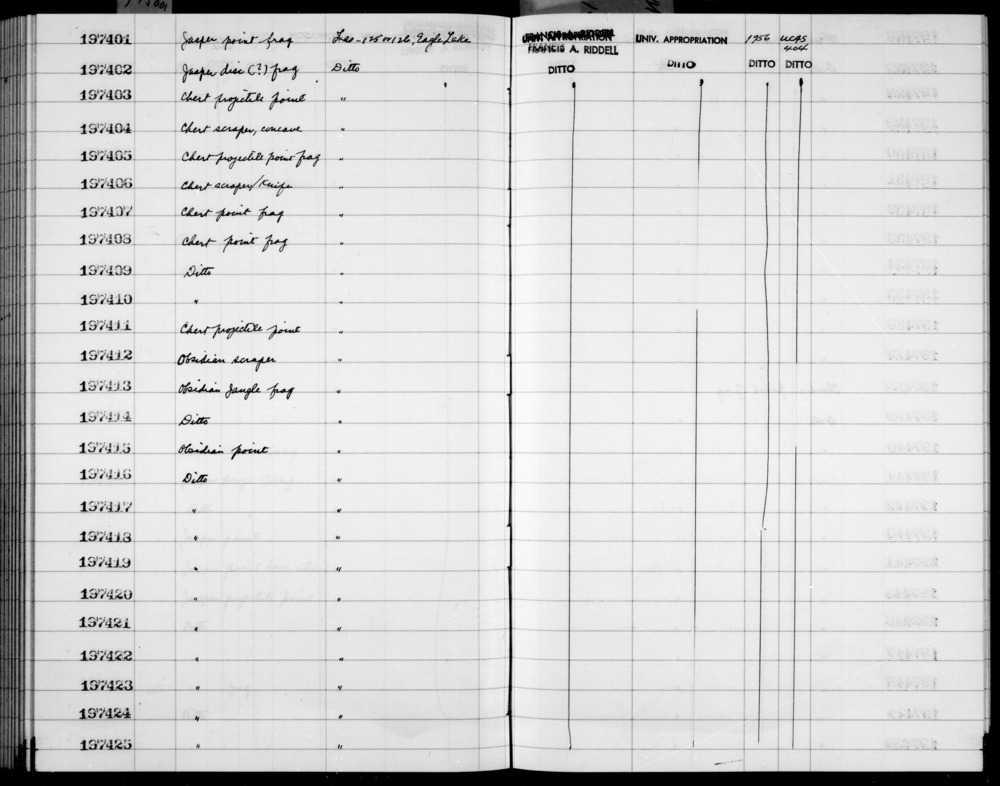 197401 Jasper point frag Las-125 or 126, Eagle Lake FRANCIS A. RIDDELL UNIV. APPROPRIATION 1956 UCAS 404
197402 Jasper disc (?) frag Ditto DITTO DITTO DITTO DITTO
197403 Chert projectile point "
197404 Chert scraper, concave "
197405 Chert projectile point frag "
197406 Chert scraper/knife "
197407 Chert point frag "
197408 Chert point frag "
197409 Ditto "
197410 " "
197411 Chert projectile point "
197412 Obsidian scraper "
197413 Obsidian fangle frag "
197414 Ditto "
197415 Obsidian point "
197416 Ditto "
197417 " "
197418 " "
197419 " "
197420 " "
197421 " "
197422 " "
197423 " "
197424 " "
197425 " "